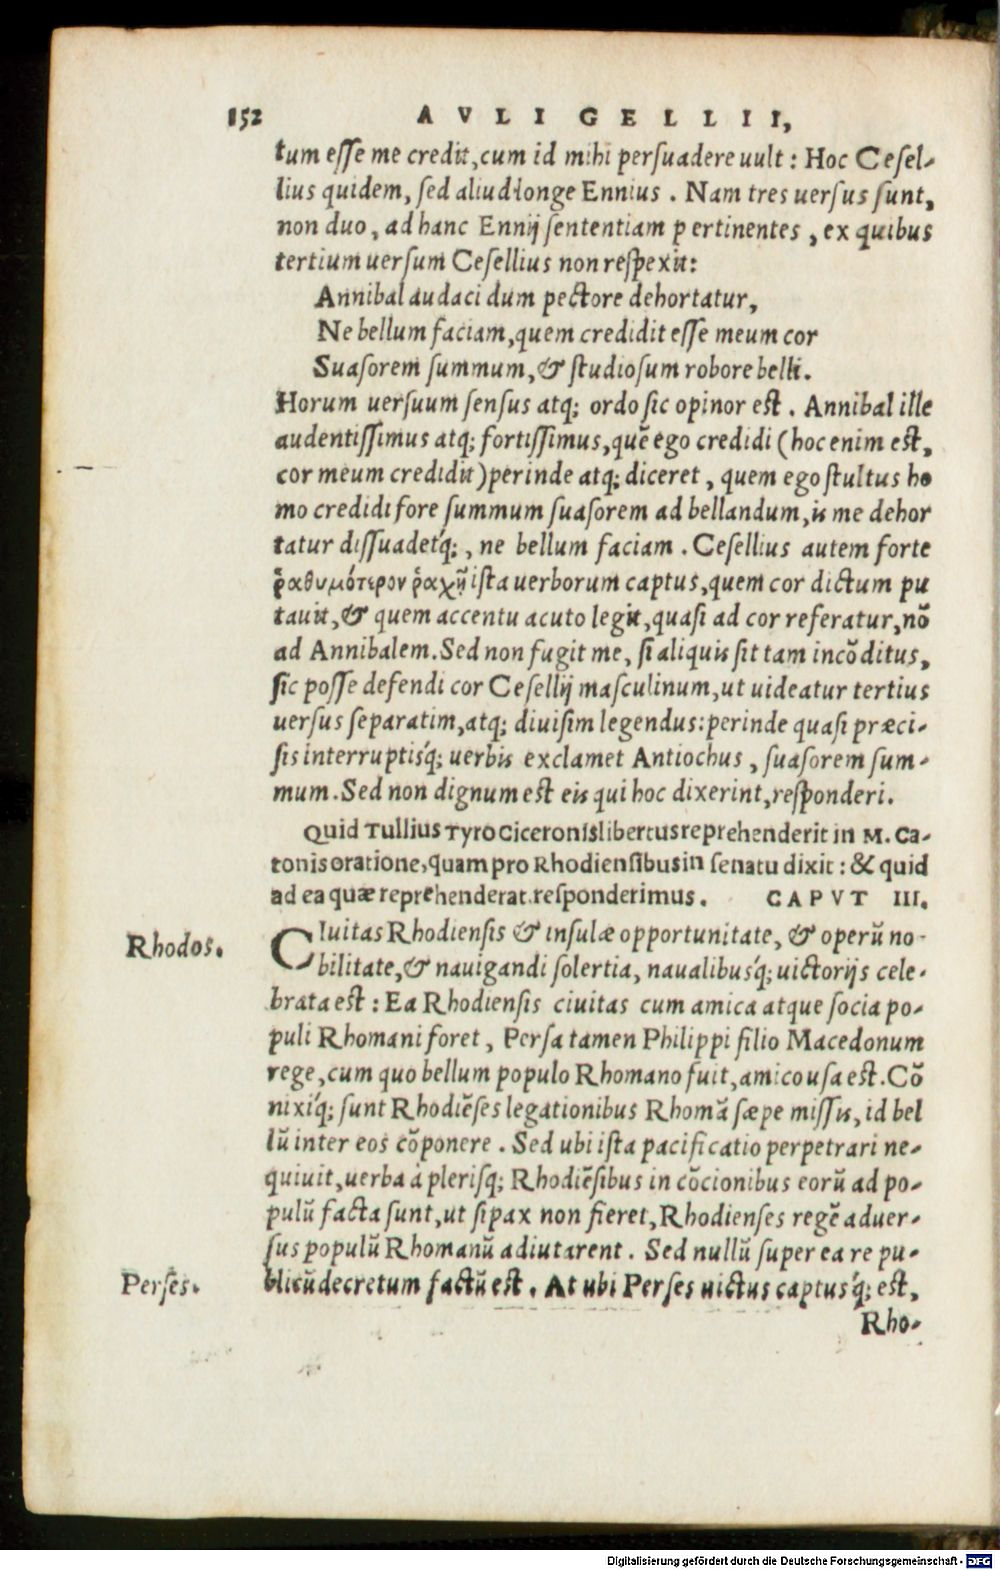 152 AVLI GELLII,
tum esse me credit, cum id mihi persuadere uult: Hoc Cesel-
lius quidem, sed aliud longe Ennius. Nam tres uersus sunt,
non duo, ad hanc Ennij sententiam pertinentes, ex quibus
tertium uersum Cesellius non respexit:
Annibal audaci dum pectore dehortatur,
Ne bellum faciam, quem credidit esse meum cor
Suasorem summum, & studiosum robore belli.
Horum uersuum sensus atq; ordo sic opinor est. Annibal ille
audentissimus atq; fortissimus, quẽ ego credidi (hoc enim est,
cor meum credidit) perinde atq; diceret, quem ego stultus ho
mo credidi fore summum suasorem ad bellandum, is me dehor
tatur dissuadetq́;, ne bellum faciam. Cesellius autem forte
ῥαθυμότερον ῥαχῇ ista uerborum captus, quem cor dictum pu
tauit, & quem accentu acuto legit, quasi ad cor referatur, nõ
ad Annibalem. Sed non fugit me, si aliquis sit tam incõditus,
sic posse defendi cor Cesellij masculinum, ut uideatur tertius
uersus separatim, atq; diuisim legendus: perinde quasi præci-
sis interruptisq́; uerbis exclamet Antiochus, suasorem sum-
mum. Sed non dignum est eis qui hoc dixerint, responderi.
Quid Tullius Tyro Ciceronis libertus reprehenderit in M. Ca-
tonis oratione, quam pro Rhodiensibus in senatu dixit: & quid
ad ea quæ reprehenderat responderimus. CAPVT III.
Rhodos.
CIuitas Rhodiensis & insulæ opportunitate, & operũ no-
bilitate, & nauigandi solertia, naualibusq́; uictorijs cele-
brata est: Ea Rhodiensis ciuitas cum amica atque socia po-
puli Rhomani foret, Persa tamen Philippi filio Macedonum
rege, cum quo bellum populo Rhomano fuit, amico usa est. Cõ
nixiq́; sunt Rhodiẽses legationibus Rhomã sæpe missis, id bel
lũ inter eos cõponere. Sed ubi ista pacificatio perpetrari ne-
quiuit, uerba à plerisq; Rhodiẽsibus in cõcionibus eorũ ad po-
pulũ facta sunt, ut si pax non fieret, Rhodienses regẽ aduer-
sus populũ Rhomanũ adiutarent. Sed nullũ super ea re pu-
Perses.
blicũ decretum factũ est. At ubi Perses uictus captusq́; est,
Rho-
Digitalisierung gefördert durch die Deutsche Forschungsgemeinschaft - DFG